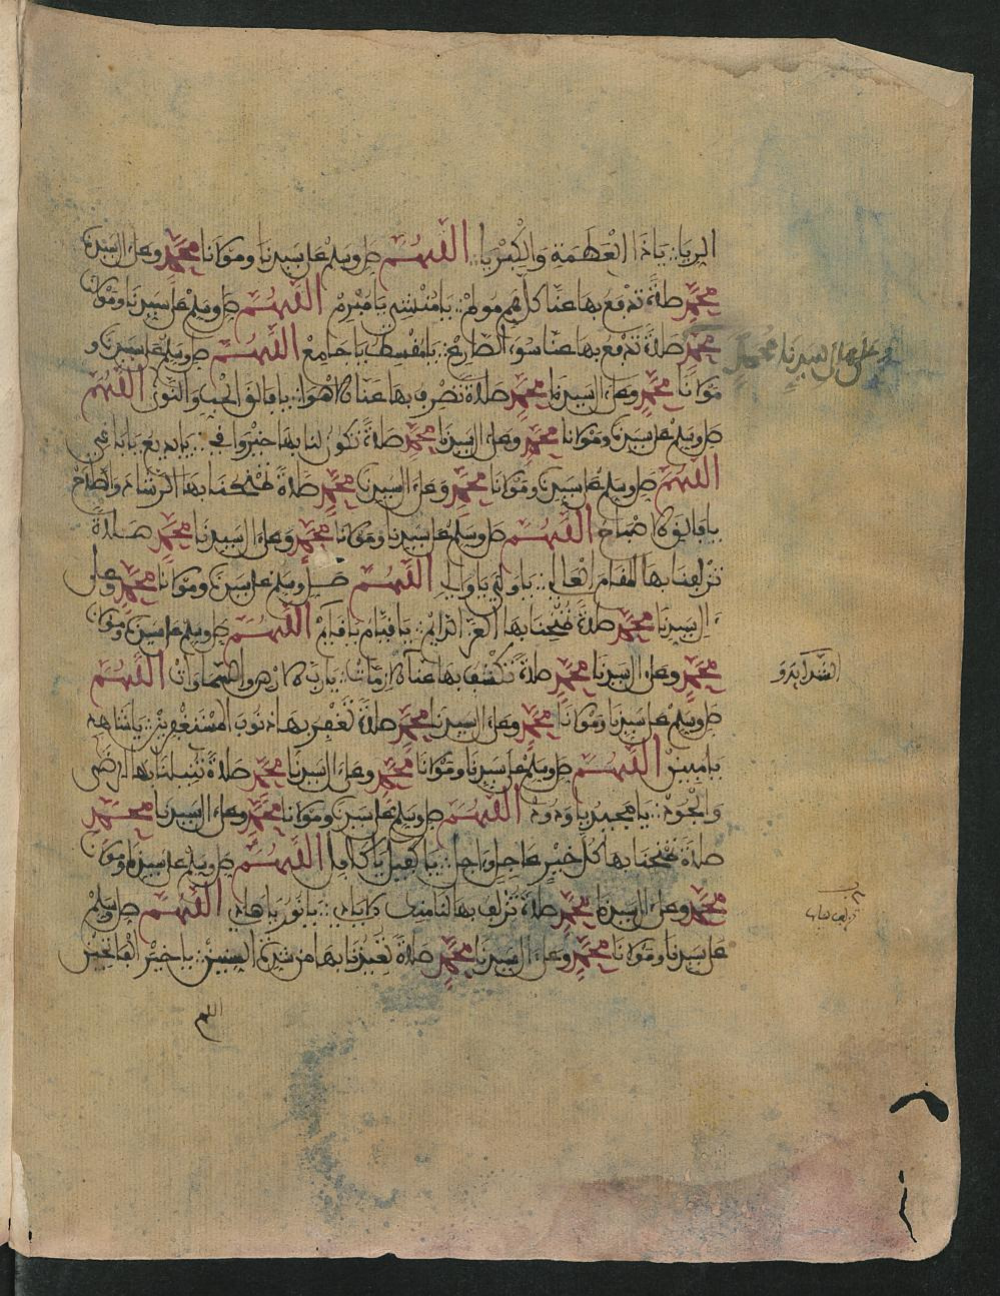 الريا يا ذا العظمة والكبريا اللهم صل وسلم على سيدنا ومولانا محمد وعلى ال سيدنا
محمد صلاة تدفع بها عنا كل هم مولم يا منشئ يا مبرم اللهم صل وسلم على سيدنا ومولانا
محمد صلاة تدفع بها عنا سوء الطارع يا مقسط يا جامع اللهم صل وسلم على سيدنا و
وعلى ال سيدنا محمد
مولانا محمد وعلى ال سيدنا محمد صلاة تصرف بها عنا الاهوا يا فالق الحب والنوى اللهم
صل وسلم على سيدنا ومولانا محمد وعلى ال سيدنا محمد صلاة تكون لنا بها يا بديع يا
اللهم صل وسلم على سيدنا ومولانا محمد وعلى ال سيدنا محمد صلاة تمنحنا بها الرشاد والصلاح
يا فالق الاصباح اللهم صل وسلم على سيدنا ومولانا محمد وعلى ال سيدنا محمد صلاة
تزلفنا بها المقام العالي يا ولي يا والي اللهم صل وسلم على سيدنا ومولانا محمد وعلى
ال سيدنا محمد صلاة تمنحنا بها العز يا قيام يا قيم اللهم صل وسلم على سيدنا ومولانا
محمد وعلى ال سيدنا محمد صلاة تكشف بها عنا الازمات يا رب الارض والسماوات اللهم
الشدايد و
صل وسلم على سيدنا ومولانا محمد وعلى ال سيدنا محمد صلاة تغفر بها ذنوب المستغفرين يا شاهد
يا مبين اللهم صل وسلم على سيدنا ومولانا محمد وعلى ال سيدنا محمد صلاة تنيلنا بها الرضى
والجود يا مجيد يا ودود اللهم صل وسلم على سيدنا ومولانا محمد وعلى ال سيدنا محمد
صلاة تمنحنا بها كل خير عاجل واجل يا كفيل يا كامل اللهم صل وسلم على سيدنا ومولانا
محمد وعلى ال سيدنا محمد صلاة تزلف بها لنا يا نور يا هادي اللهم صل وسلم
على سيدنا ومولانا محمد وعلى ال سيدنا محمد صلاة تعيذنا بها من يا خير الفاتحين
اللهم